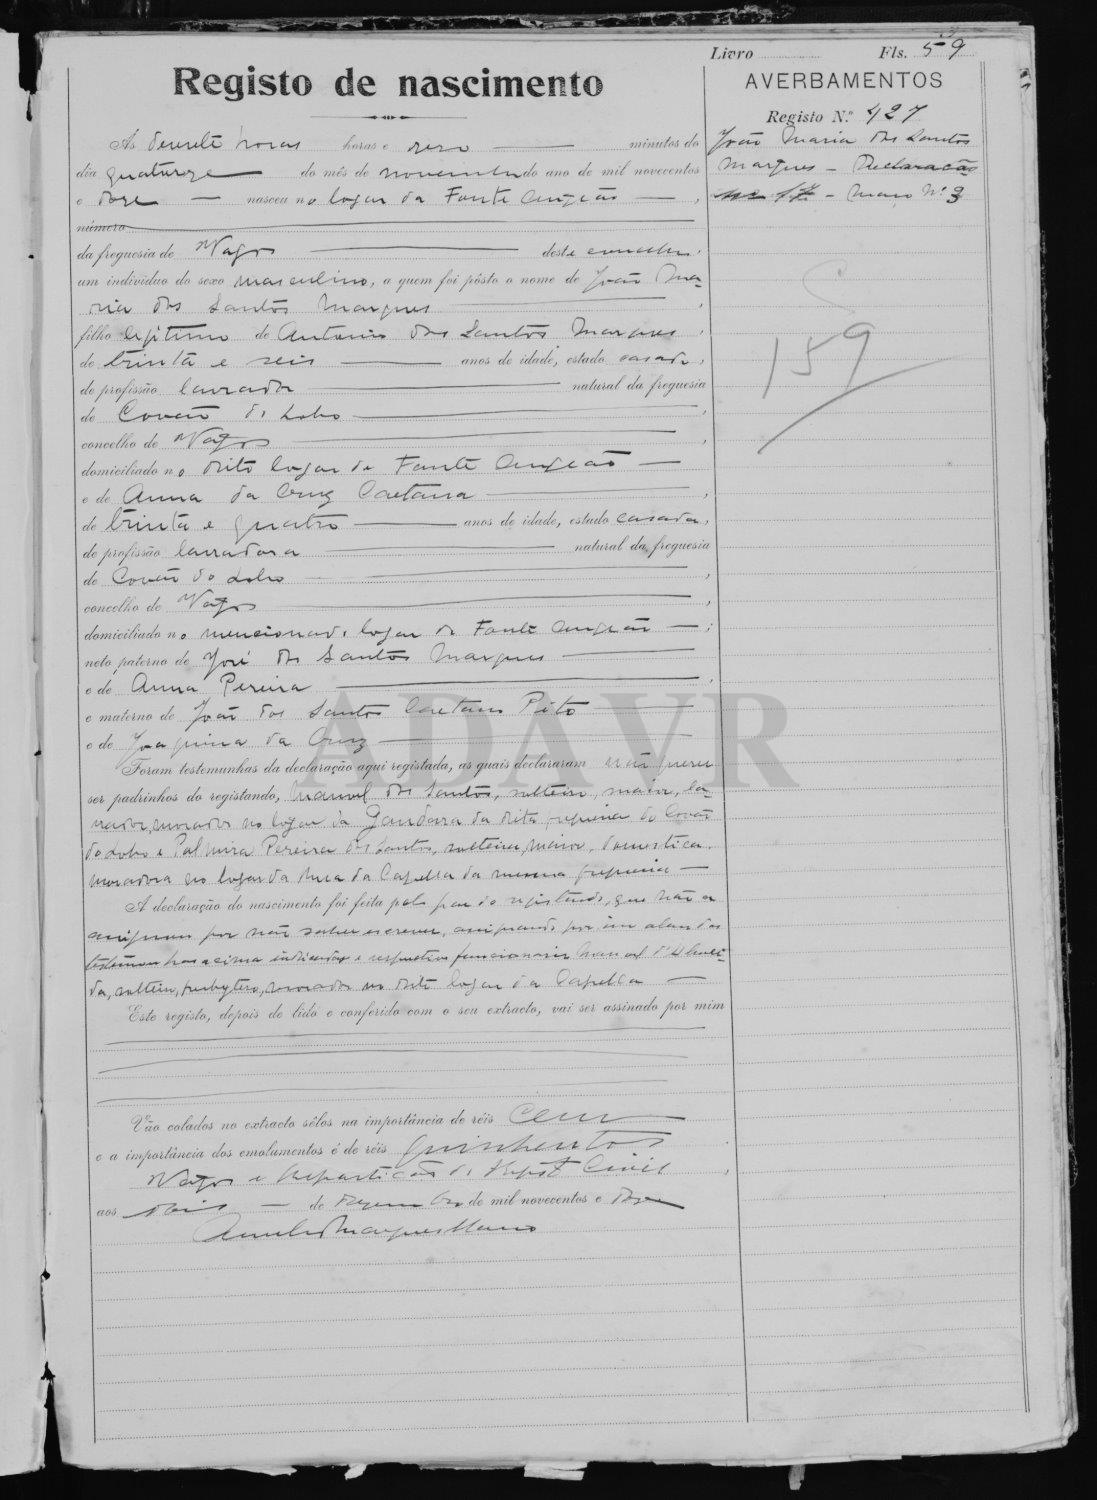 Livro Fls. 59
Registo de nascimento
AVERBAMENTOS
Registo N.º 427
João Maria dos Santos
Marques - Declaração
nº 17 - Maço Nº 3
159
Ás dezesete horas horas e zero minutos do
dia quatorze do mês de novembro do ano de mil novecentos
e doze nasceu no logar da Fonte Angeão,
número
da freguesia de Vagos deste concelho.
um indivíduo do sexo masculino, a quem foi pôsto o nome de João Ma-
ria dos Santos Marques,
filho legitimo de Antonio dos Santos Marques,
de trinta e seis anos de idade, estado casado,
de profissão lavrador natural da freguesia
de Covão do Lobo,
concelho de Vagos,
domiciliado no dito logar da Fonte Angeão
e de Anna da Cruz Caetana,
de trinta e quatro anos de idade, estado casada,
de profissão lavradora natural da freguesia
de Covão do Lobo,
concelho de Vagos,
domiciliado no mencionado logar da Fonte Angeão;
neto paterno de José dos Santos Marques
e de Anna Pereira,
e materno de João dos Santos Caetano Pito
e de Joaquina da Cruz
Foram testemunhas da declaração aqui registada, as quais declararam não querer
ser padrinhos do registando, Manuel dos Santos, solteiro, maior, la-
vrador, morador no logar da Gandara da dita freguesia do Covão
do Lobo e Palmira Pereira dos Santos, solteira, maior, domestica,
moradora no logar da Rua da Capella da mesma freguesia
A declaração do nascimento foi feita pelo pae do registando, que não a
assignou por não saber escrever, assignando por im alem das
testemunhas acima indicadas o respectivo funcionario Manoel d'Almei-
da, solteiro, presbytero, morador no dito logar da Capella
Este registo, depois de lido e conferido com o seu extracto, vai ser assinado por mim
Vão colados no extracto sêlos na importância de réis Cem
e a importância dos emolumentos é de réis quinhentos
Vagos e Repartição do Regist Civil
aos dois de Dezembro de mil novecentos e doze
Marques Mano
ADAVR